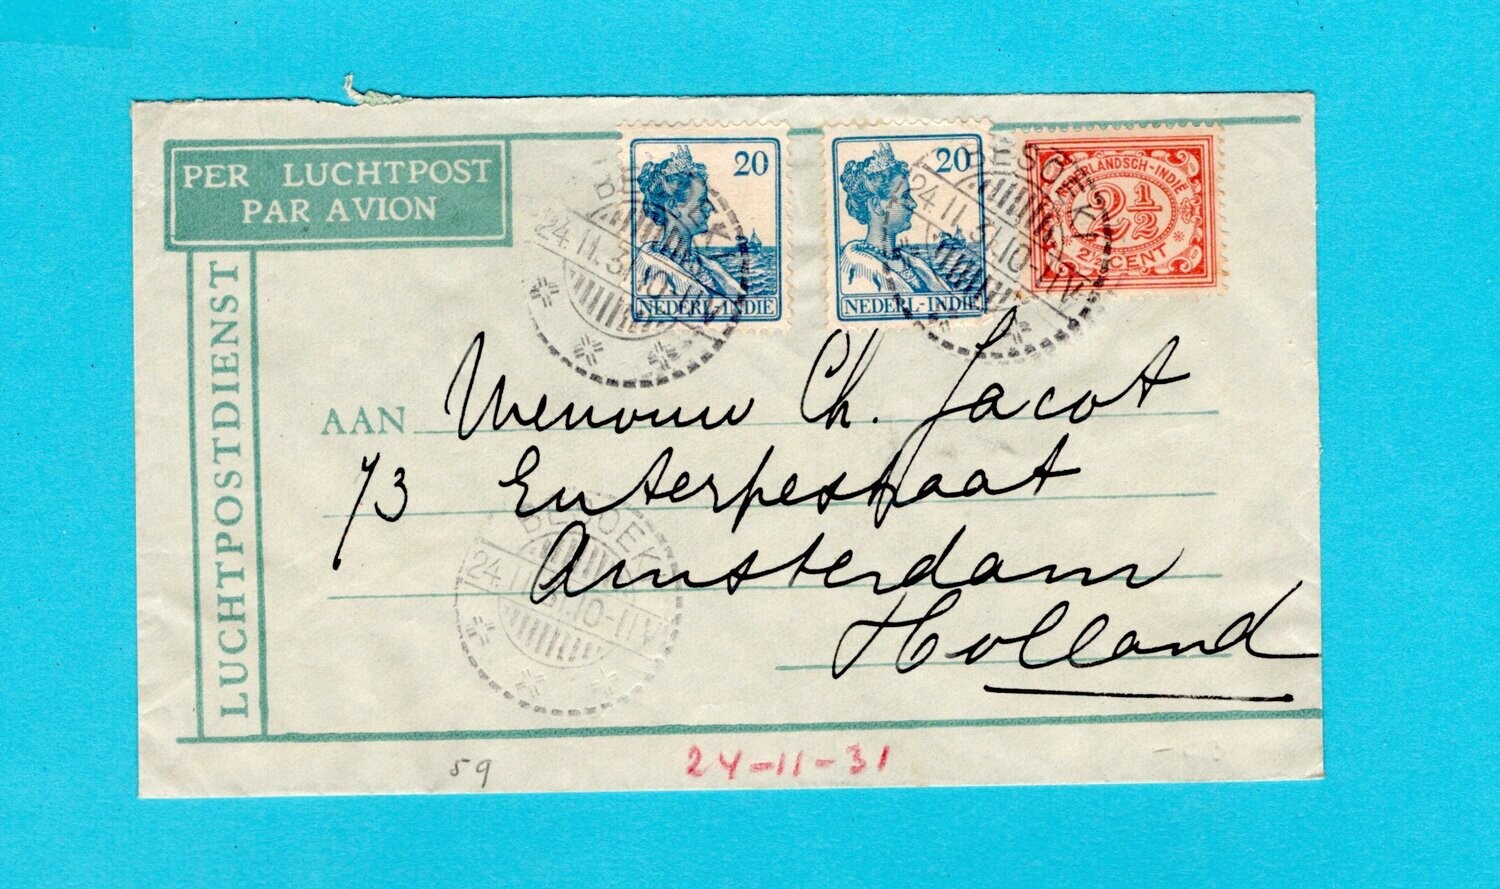 PER LUCHTPOST
PAR AVION
LUCHTPOSTDIENST
20
NEDERL-INDIE
20
NEDERL-INDIE
NEDERLANDSCH-INDIË
2½
2½ CENT
BESOEKI
24.11.31.10-11V
BESOEKI
24.11.31.10-11V
AAN Mevrouw Ch. Jacot
73 Euterpestraat
Amsterdam
Holland
BESOEKI
24.11.31.10-11V
59
24-11-31